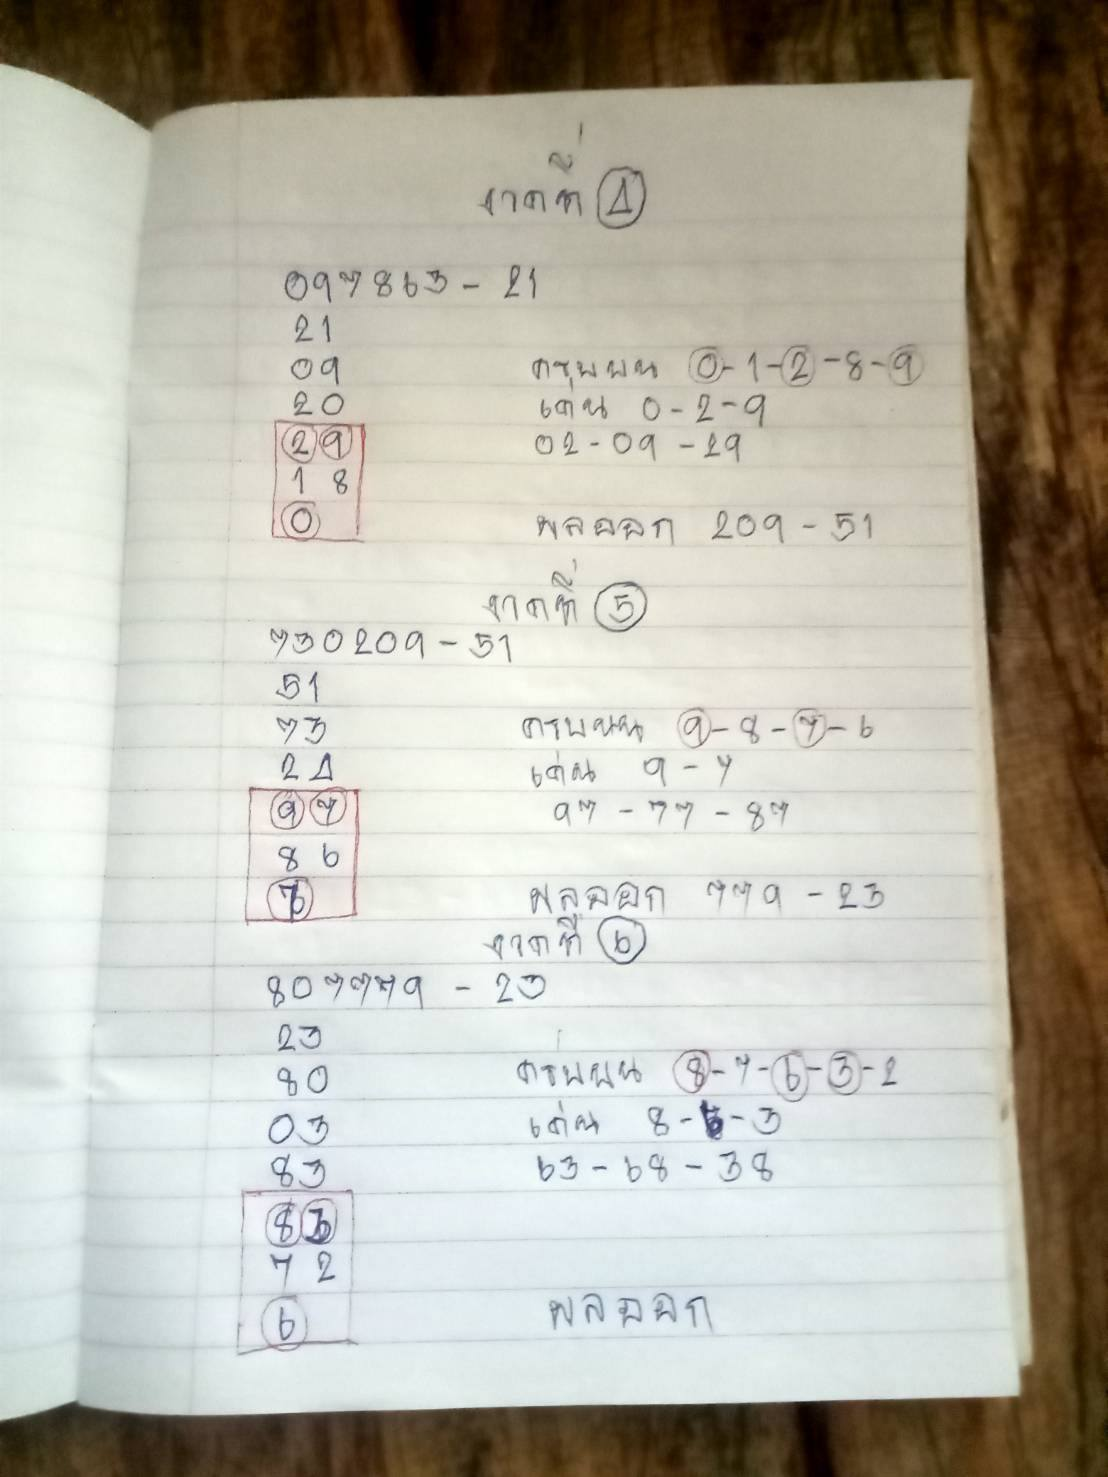 งวดที่ 4
097863 - 21
21
09 ครบบน 0-1-2-8-9
20 เด่น 0-2-9
29 02-09-29
18
0 ผลออก 209-51
งวดที่ 5
730209-51
51
73 ครบบน 9-8-7-6
24 เด่น 9-7
97 97-77-87
86
7 ผลออก 779-23
งวดที่ 6
807779 - 23
23
80 ครบบน 8-7-6-3-2
03 เด่น 8-6-3
83 63-68-38
8
72
6 ผลออก